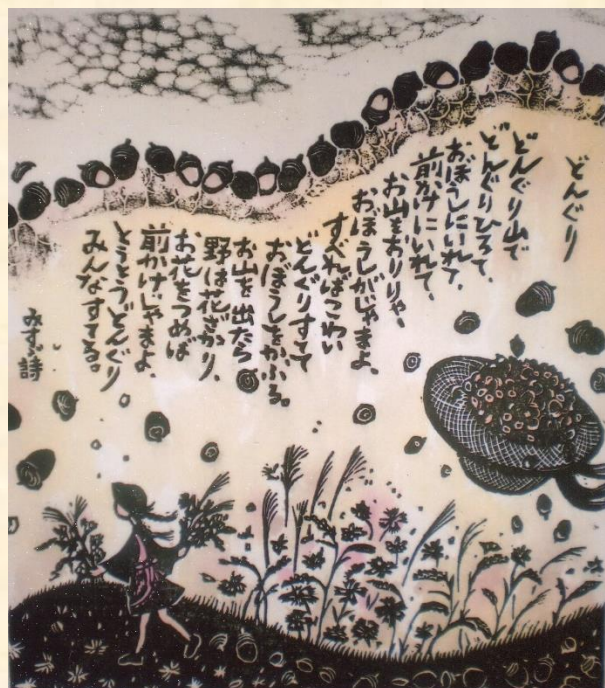 どんぐり
どんぐり山で
どんぐりひろて、
おぼうしにいれて、
前かけにいれて、
お山をおりりゃ、
おぼうしがじゃまよ、
すべればこわい
どんぐりすてて
おぼうしをかぶる。
お山を出たら
野は花ざかり、
お花をつめば
前かけじゃまよ、
とうとうどんぐり
みんなすてる。
みすゞ詩